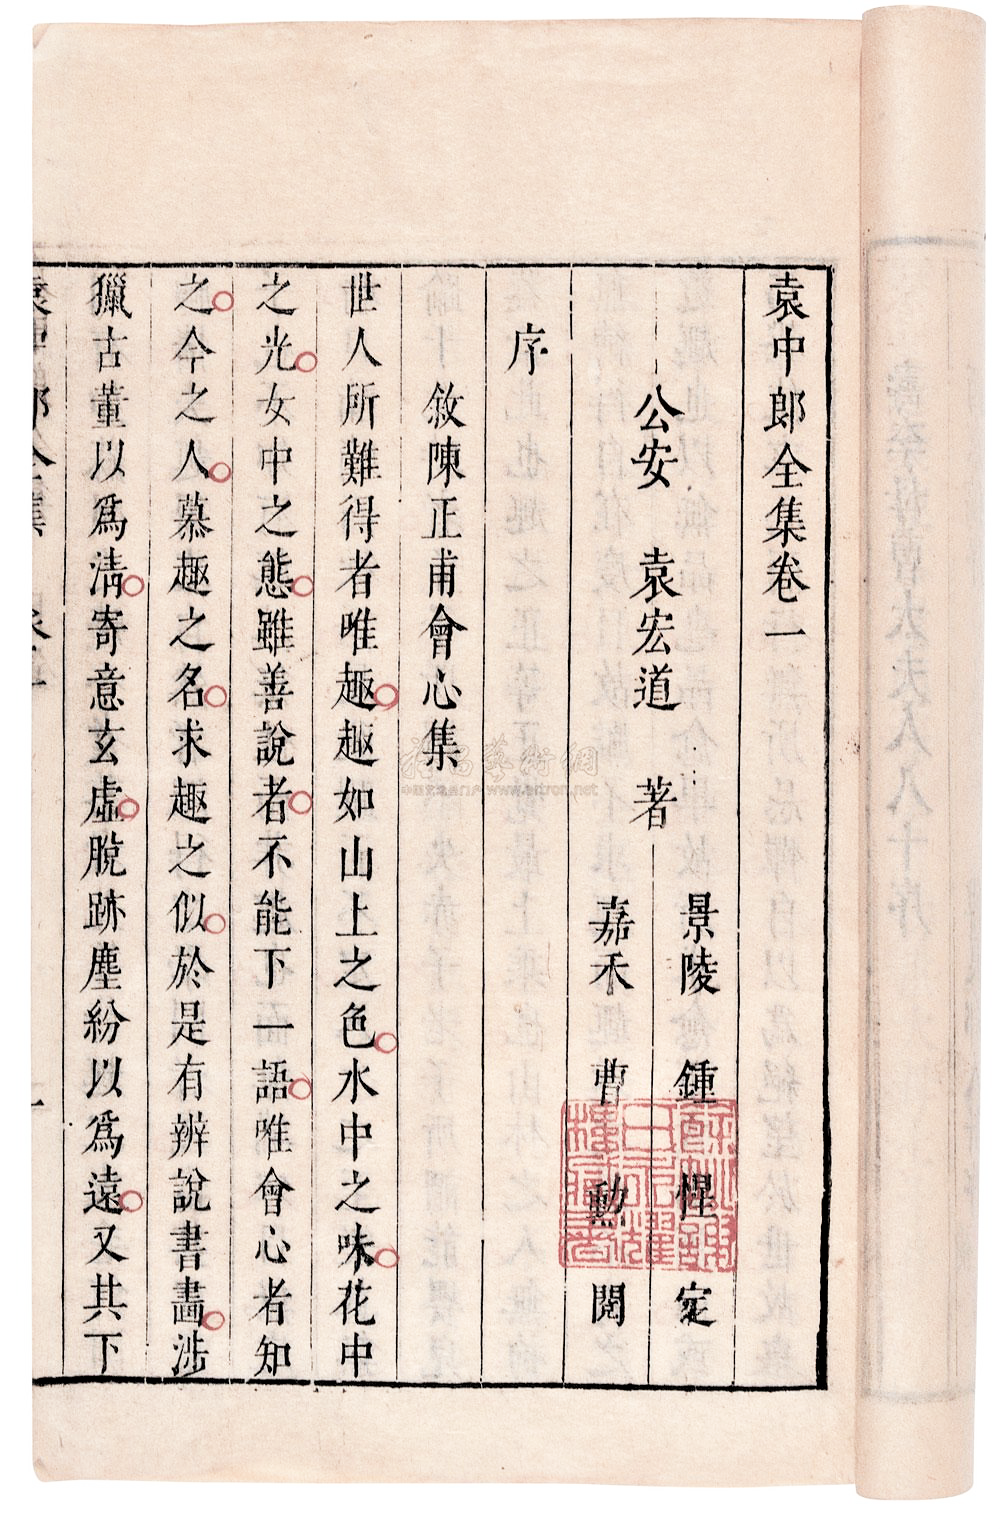 袁中郎全集卷一
公安　袁宏道　著
景陵　鍾　惺　定
嘉禾　曹　勳　閱
序
敘陳正甫會心集
世人所難得者唯趣趣如山上之色水中之味花中
之光女中之態雖善說者不能下一語唯會心者知
之今之人慕趣之名求趣之似於是有辨說書畵涉
獵古董以爲淸寄意玄虛脫跡塵紛以爲遠又其下